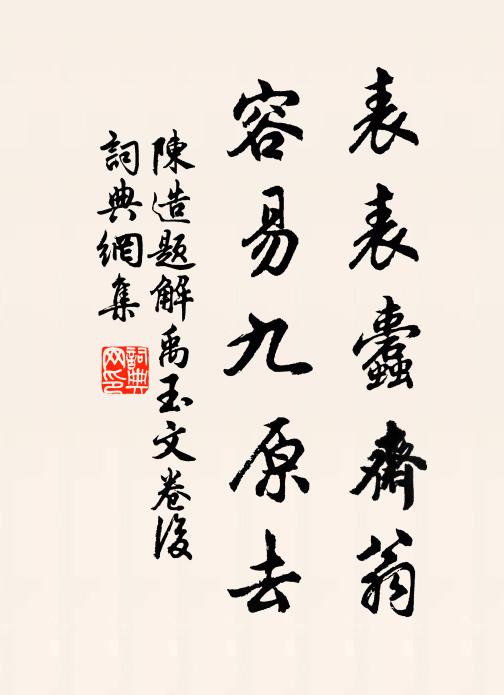 表表蠹齋翁
容易九原去
陳造題解禹玉文卷後
詞典網集
詞典网印